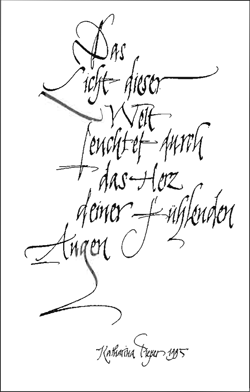 Das
Licht dieser
Welt
leuchtet durch
das Herz
deiner fühlenden
Augen
Katharina Pieper 1995